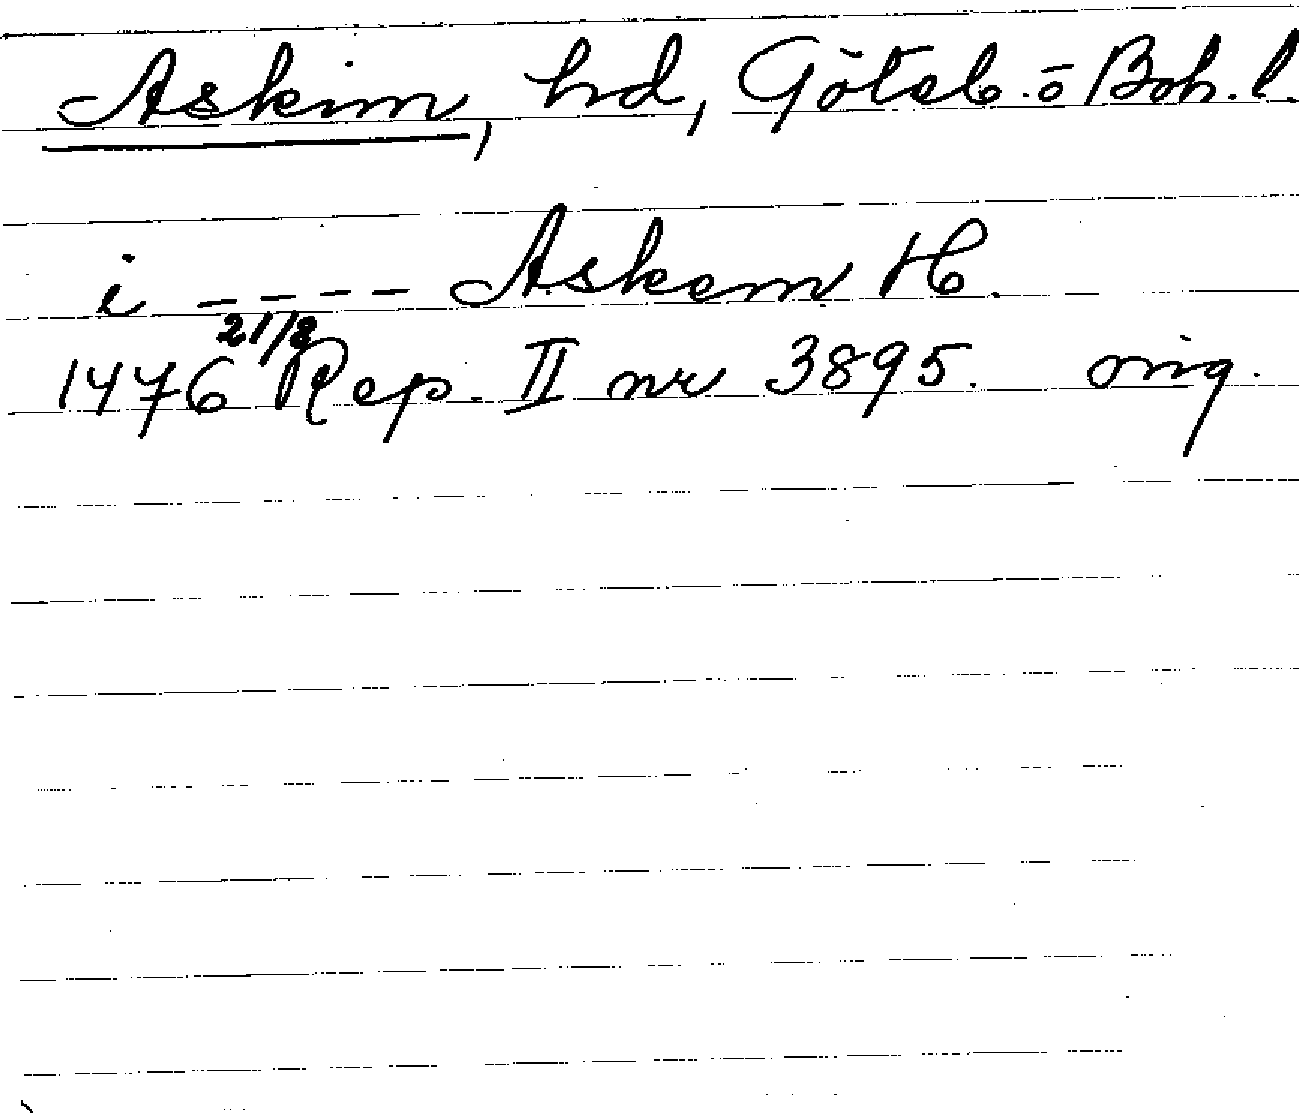 Askim, hd, Göteb. o Boh. l.
i ---- Askem H.
1476 21/8 Rep. II nr 3895. orig.